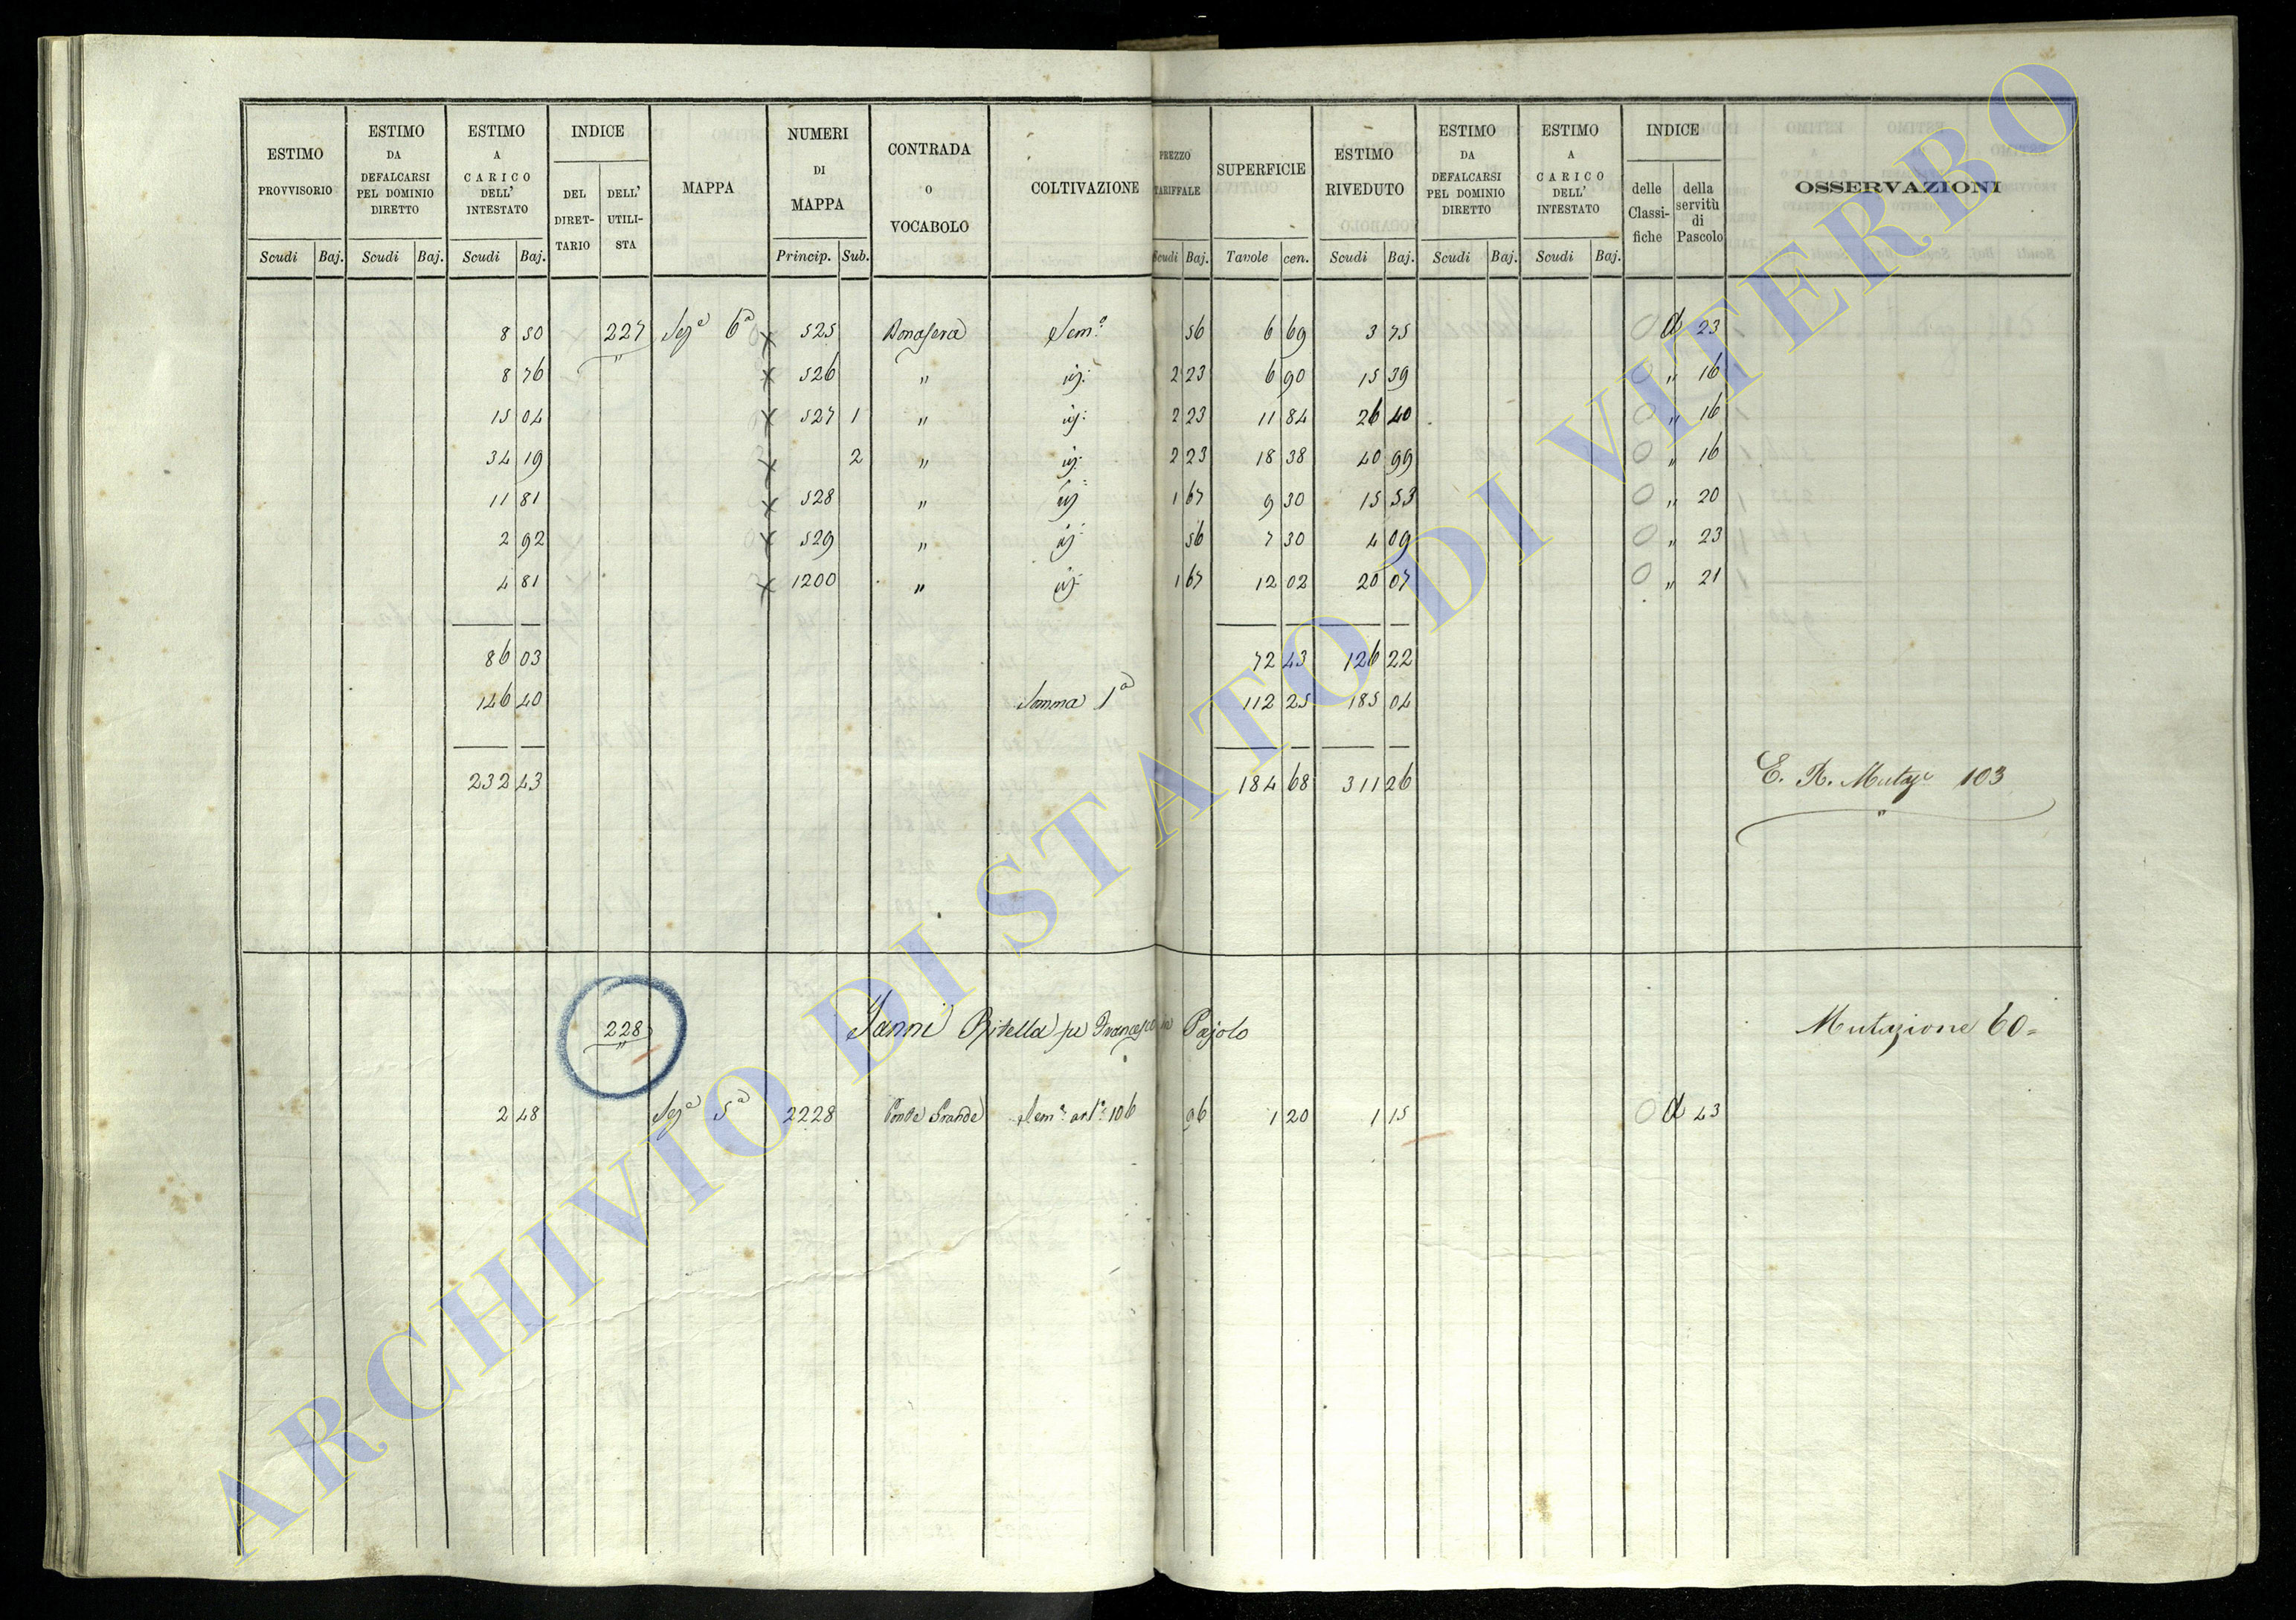 ESTIMO PROVVISORIO Scudi Baj. ESTIMO DA DEFALCARSI PEL DOMINIO DIRETTO Scudi Baj. ESTIMO A CARICO DELL' INTESTATO Scudi Baj. INDICE DEL DIRETTARIO DELL' UTILISTA MAPPA NUMERI DI MAPPA Princip. Sub. CONTRADA O VOCABOLO COLTIVAZIONE PREZZO TARIFFALE Scudi Baj. SUPERFICIE Tavole cen. ESTIMO RIVEDUTO Scudi Baj. ESTIMO DA DEFALCARSI PEL DOMINIO DIRETTO Scudi Baj. ESTIMO A CARICO DELL' INTESTATO Scudi Baj. INDICE delle Classifiche della servitù di Pascolo OSSERVAZIONI
8 50 227 Sez.e 6a x 525 Bonasera Sem.o 56 6 69 3 75 O d 23
8 76 x 526 " id: 2 23 6 90 15 39 O " 16
15 04 x 527 1 " id: 2 23 11 84 26 40 O " 16
34 19 x 2 " id: 2 23 18 38 40 99 O " 16
11 81 x 528 " id: 1 67 9 30 15 53 O " 20
2 92 x 529 " id: 56 7 30 4 09 O " 23
4 81 x 1200 " id: 1 67 12 02 20 07 O " 21
86 03 72 43 126 22
146 40 Somma 1a 112 25 185 04
232 43 184 68 311 26 E. R. Mutaze 103
228 Janni Pajolo Mutazione 60=
2 48 Sez.e 5a 2228 Ponte Grande Sem.o art.o 106 96 1 20 1 15 O d 43
ARCHIVIO DI STATO DI VITERBO